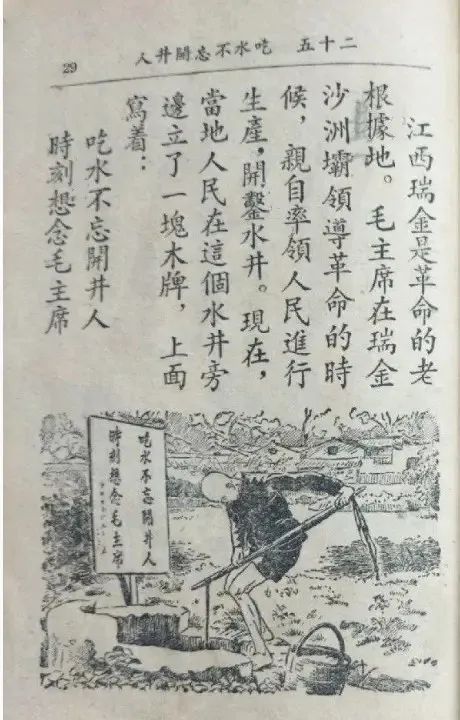 二十五 吃水不忘開井人
29
江西瑞金是革命的老
根據地。毛主席在瑞金
沙洲壩領導革命的時
候，親自率領人民進行
生產，開鑿水井。現在，
當地人民在這個水井旁
邊立了一塊木牌，上面
寫着：
吃水不忘開井人
時刻想念毛主席
吃水不忘開井人
時刻想念毛主席